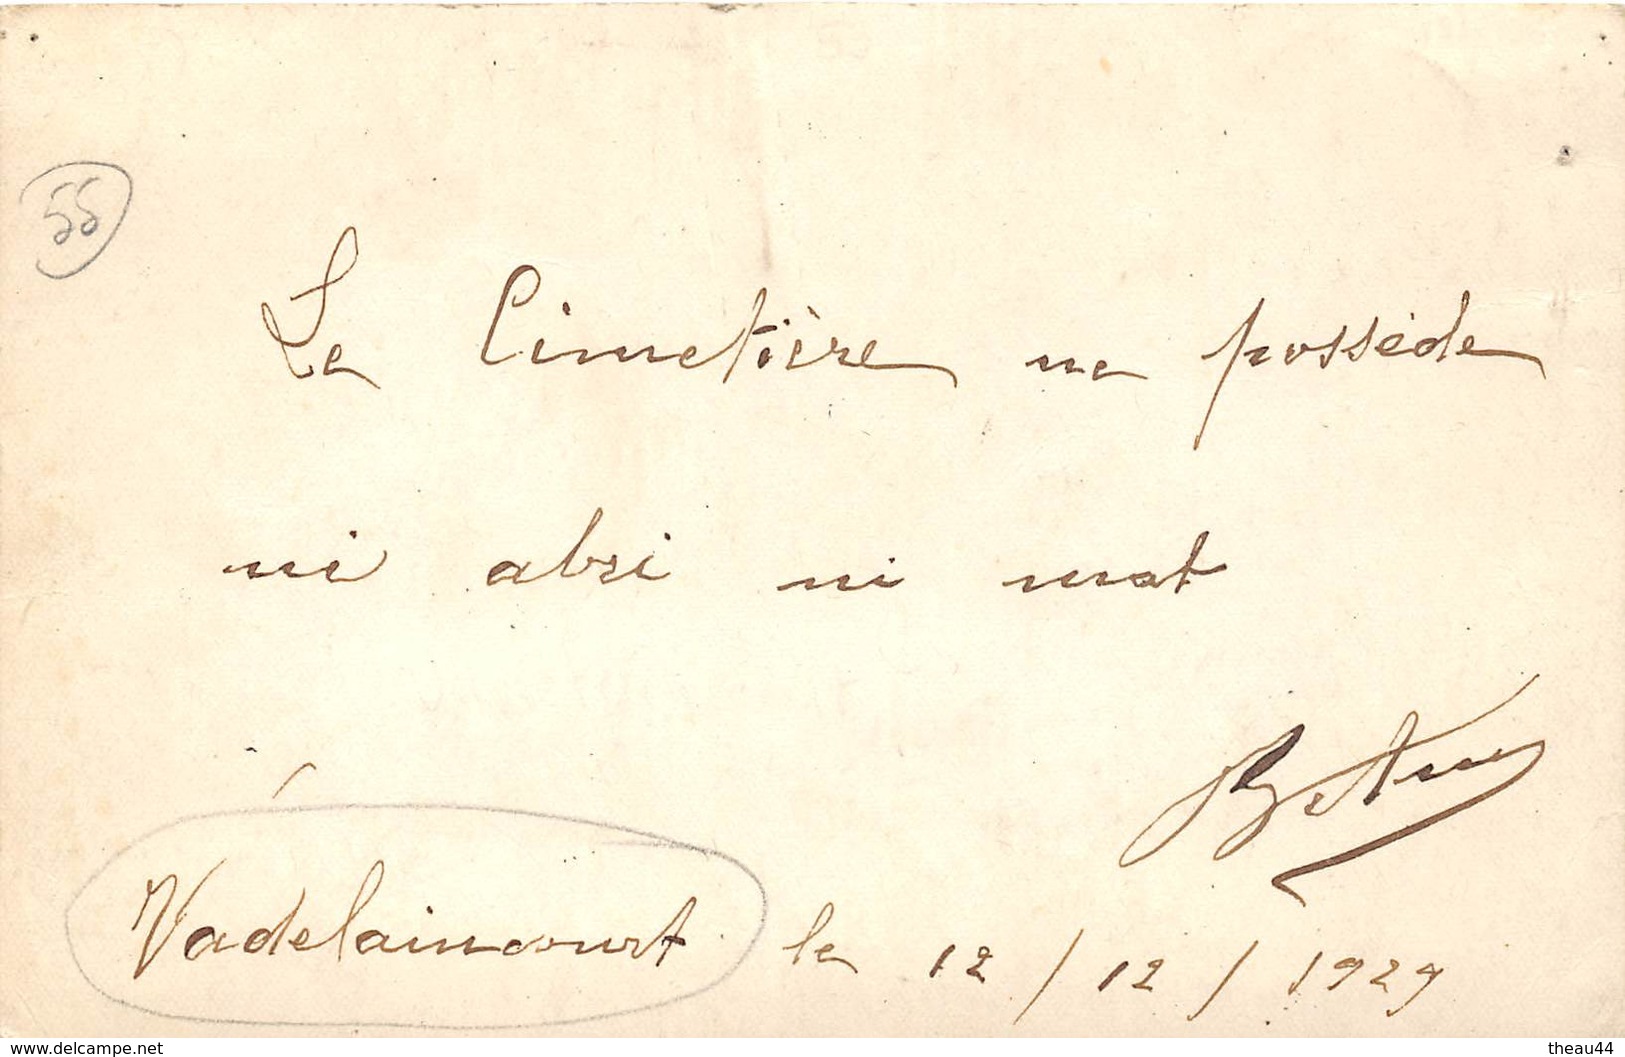 55
Le Cimetière ne possède
ni abri ni mat
Vadelaincourt le 12/12/1929
www.delcampe.net
theau44